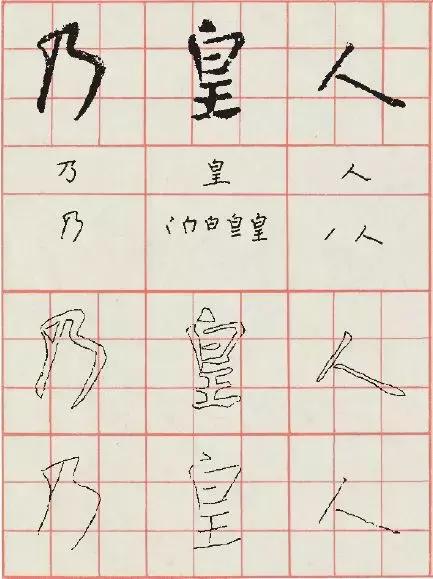 乃 皇 人
乃 皇 人
乃 白 皇 皇 人
乃 皇 人
乃 皇 人